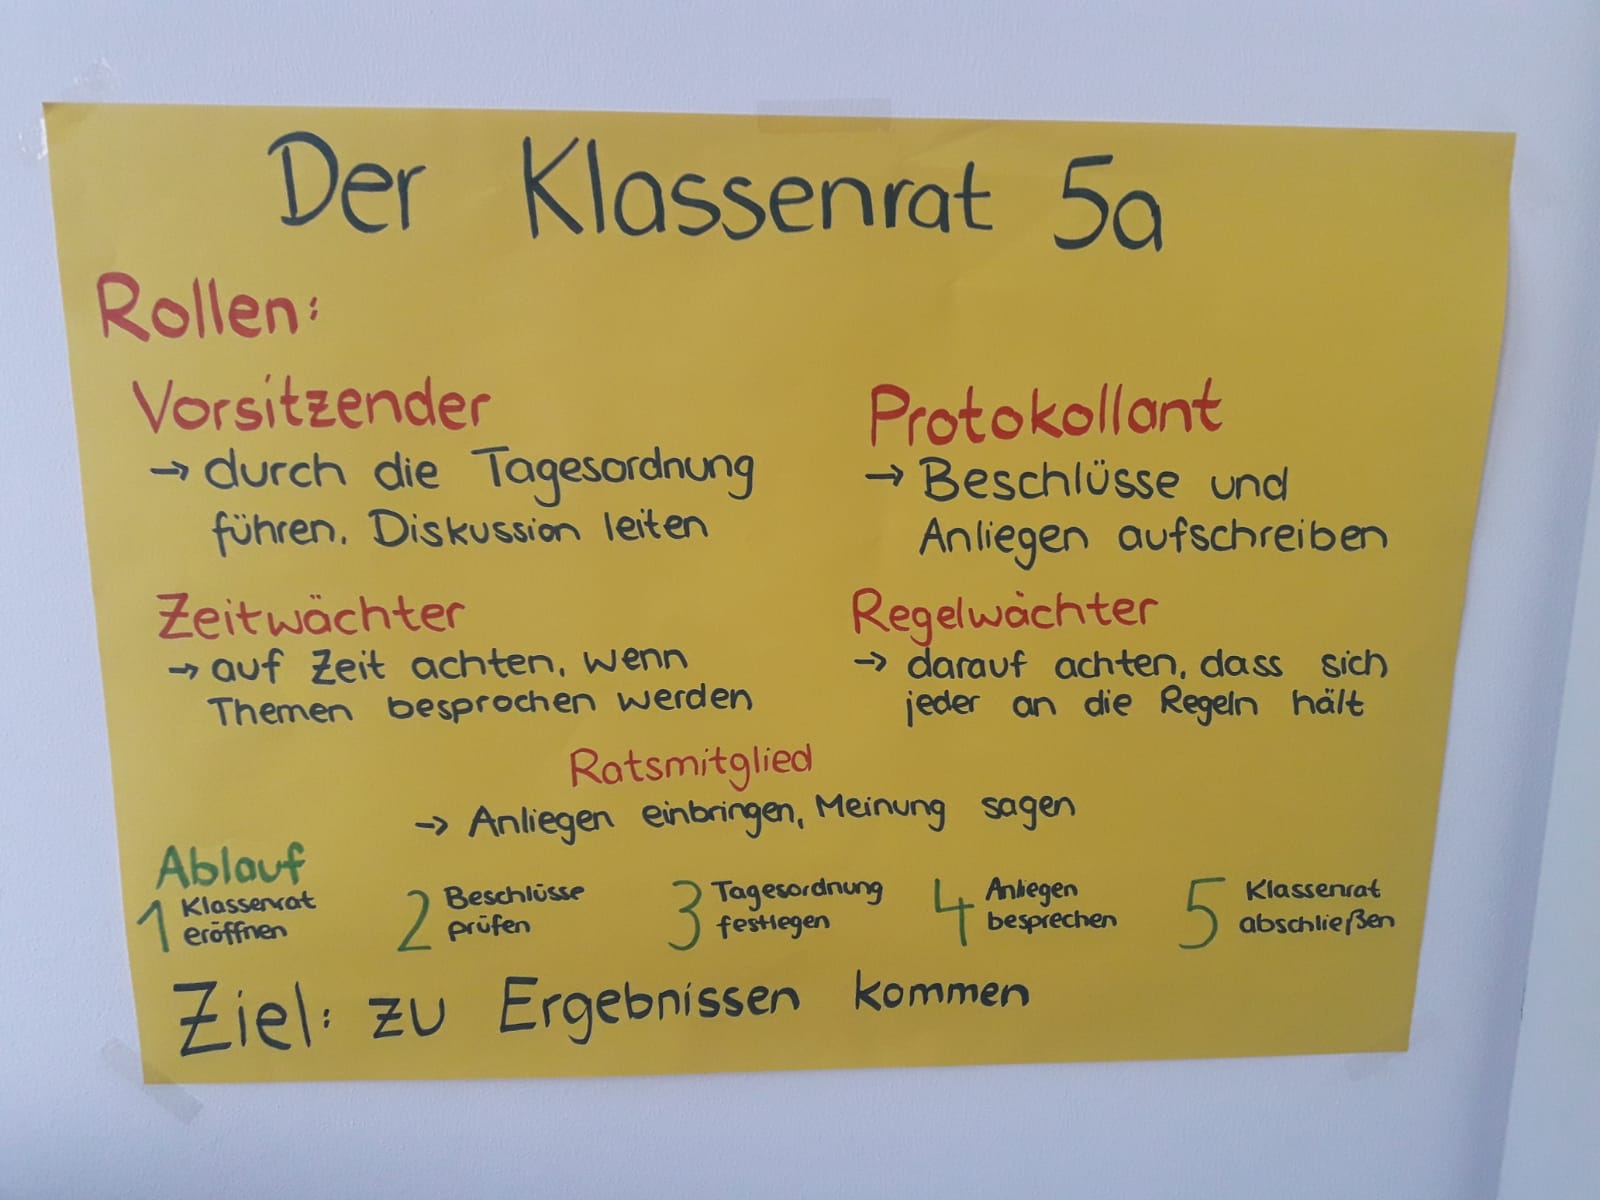 Der Klassenrat 5a
Rollen:
Vorsitzender
→ durch die Tagesordnung
führen, Diskussion leiten
Protokollant
→ Beschlüsse und
Anliegen aufschreiben
Zeitwächter
→ auf Zeit achten, wenn
Themen besprochen werden
Regelwächter
→ darauf achten, dass sich
jeder an die Regeln hält
Ratsmitglied
→ Anliegen einbringen, Meinung sagen
Ablauf
1 Klassenrat
eröffnen
2 Beschlüsse
prüfen
3 Tagesordnung
festlegen
4 Anliegen
besprechen
5 Klassenrat
abschließen
Ziel: zu Ergebnissen kommen